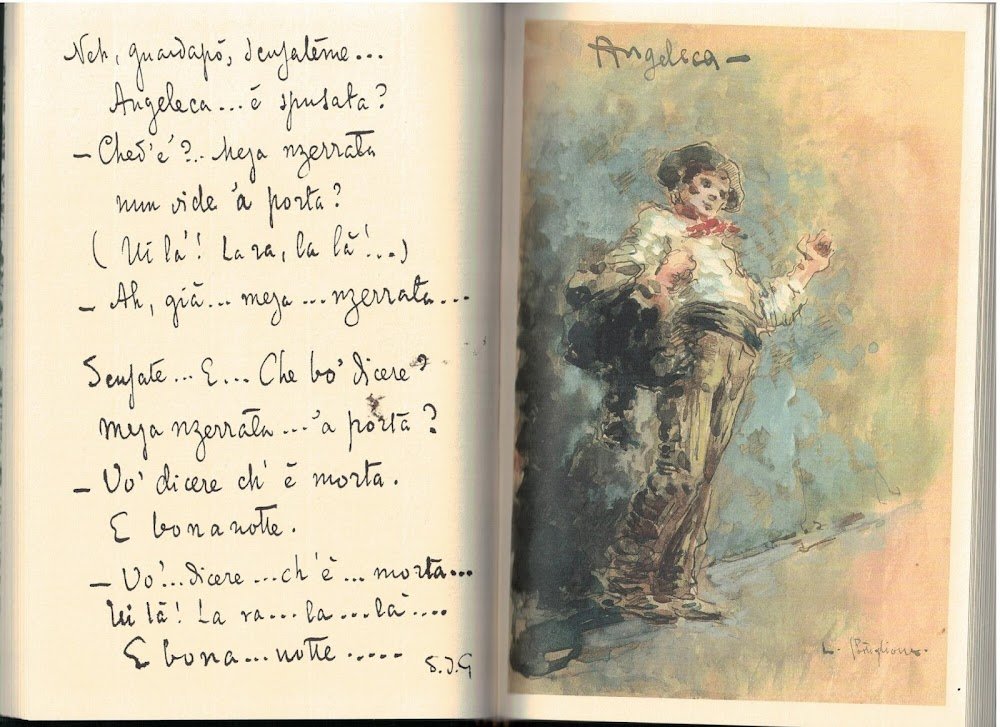 Neh, guardapò, scusateme...
Angeleca... è spusata?
– Ched'è?.. Meja nzerrata
nun vide 'a porta?
( Uì là! La ra, la là!...)
– Ah, già... meja... nzerrata...
Scusate... E... Che bo' dicere?
meja nzerrata... 'a porta?
– Vo' dicere ch'è morta.
E bona notte.
– Vo'... dicere... ch'è... morta...
Uì là! La ra... la... là....
E bona... notte.....
S.D.G
Angeleca –
L.